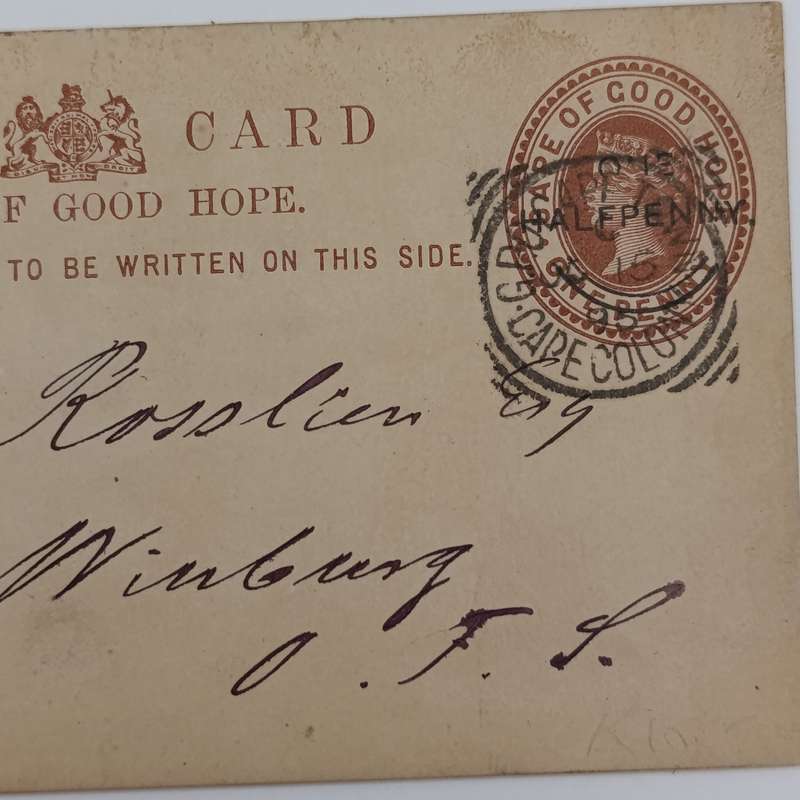 CARD
F GOOD HOPE.
TO BE WRITTEN ON THIS SIDE.
CAPE OF GOOD HOPE
ONE PENNY
ONE
HALFPENNY.
CAPE COLONY
15
95
Rosslien Esq
Winburg
O. F. S.